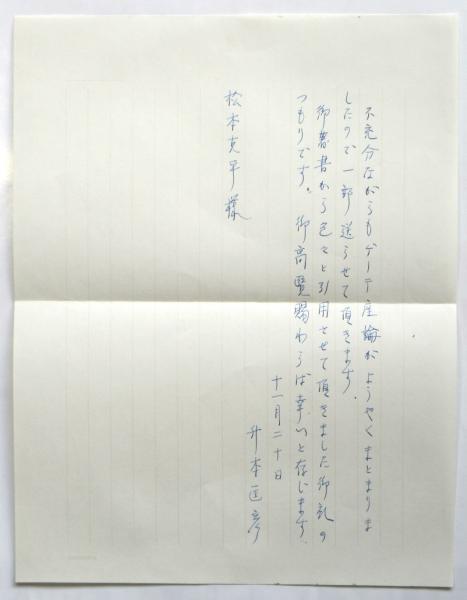 不充分ながらもゲーテ座論がようやくまとまりま
したので一部送らせて頂きます。
御著書から色々と引用させて頂きました御礼の
つもりです。御高覧賜わらば幸いと存じます。
十一月二十日
升本匡彦
松本克平様